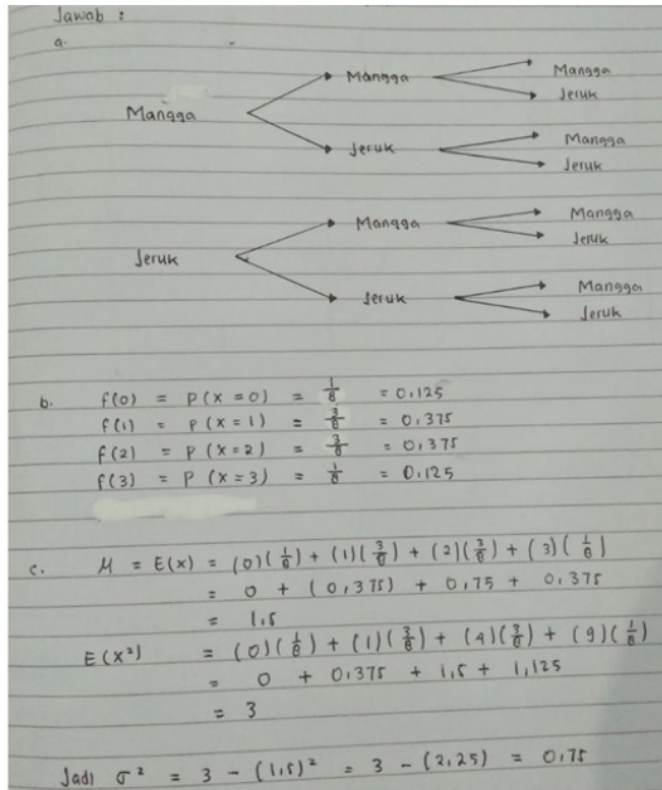 Jawab :
a.
Mangga
Mangga
Mangga
Jeruk
Jeruk
Mangga
Jeruk
Jeruk
Mangga
Mangga
Jeruk
Jeruk
Mangga
Jeruk
b. f(0) = P(x=0) = 1/8 = 0,125
f(1) = P(x=1) = 3/8 = 0,375
f(2) = P(x=2) = 3/8 = 0,375
f(3) = P(x=3) = 1/8 = 0,125
c. M = E(x) = (0)(1/8) + (1)(3/8) + (2)(3/8) + (3)(1/8)
= 0 + (0,375) + 0,75 + 0,375
= 1,5
E(x²) = (0)(1/8) + (1)(3/8) + (4)(3/8) + (9)(1/8)
= 0 + 0,375 + 1,5 + 1,125
= 3
Jadi σ² = 3 - (1,5)² = 3 - (2,25) = 0,75